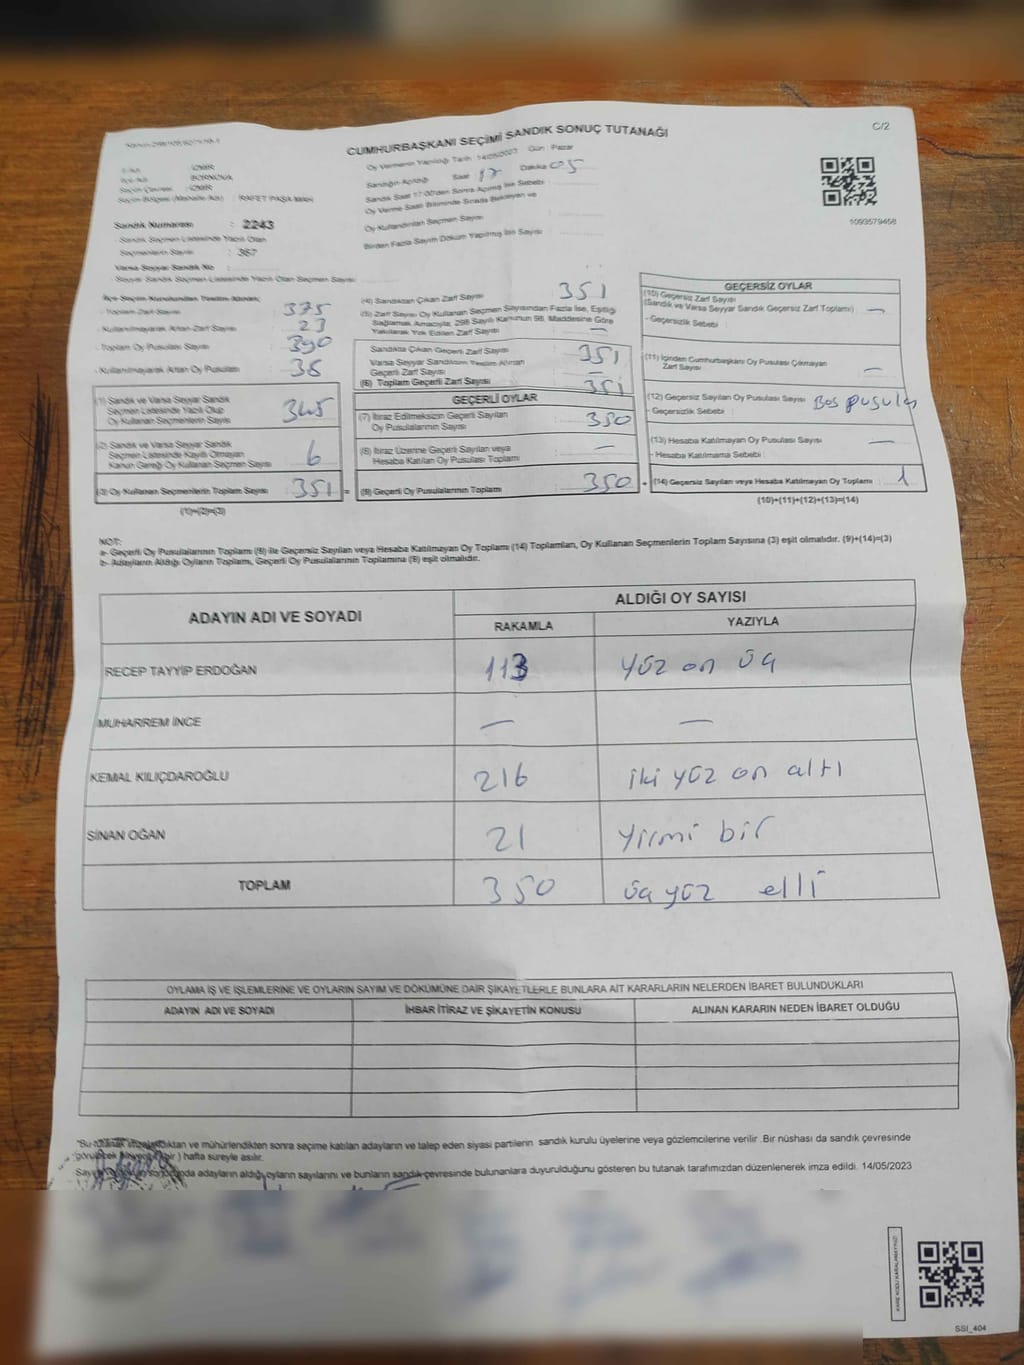 C/2
CUMHURBAŞKANI SEÇİMİ SANDIK SONUÇ TUTANAĞI
Oy Vermenin Yapıldığı Tarih : 14/05/2023 Gün : Pazar
Sandığın Açıldığı Saat 17 Dakika 05
Sandık Saat 17.00'den Sonra Açılmış İse Sebebi :
Oy Verme Saati Bitiminde Sırada Bekleyen ve
Oy Kullandırılan Seçmen Sayısı :
Birden Fazla Sayım Döküm Yapılmış İse Sayısı :
İli Adı : İZMİR
İlçe Adı : BORNOVA
Seçim Çevresi : İZMİR
Seçim Bölgesi (Mahalle/Adı) : RAFET PAŞA MAH.
1093579458
Sandık Numarası : 2243
Sandık Seçmen Listesinde Yazılı Olan
Seçmenlerin Sayısı : 367
Varsa Seyyar Sandık No :
Seyyar Sandık Seçmen Listesinde Yazılı Olan Seçmen Sayısı :
İlçe Seçim Kurulundan Teslim Alınan;
- Toplam Zarf Sayısı : 375
- Kullanılmayarak Artan Zarf Sayısı : 23
- Toplam Oy Pusulası Sayısı : 390
- Kullanılmayarak Artan Oy Pusulası : 38
(1) Sandık ve Varsa Seyyar Sandık
Seçmen Listesinde Yazılı Olup
Oy Kullanan Seçmenlerin Sayısı : 345
(2) Sandık ve Varsa Seyyar Sandık
Seçmen Listesinde Kayıtlı Olmayan
Kanun Gereği Oy Kullanan Seçmen Sayısı : 6
(3) Oy Kullanan Seçmenlerin Toplam Sayısı : 351 =
(1)+(2)=(3)
(4) Sandıktan Çıkan Zarf Sayısı : 351
(5) Zarf Sayısı Oy Kullanan Seçmen Sayısından Fazla İse, Eşitliği
Sağlamak Amacıyla, 298 Sayılı Kanunun 98. Maddesine Göre
Yakılarak Yok Edilen Zarf Sayısı : —
Sandıkta Çıkan Geçerli Zarf Sayısı : 351
Varsa Seyyar Sandıktan Teslim Alınan
Geçerli Zarf Sayısı : —
(6) Toplam Geçerli Zarf Sayısı : 351
GEÇERLİ OYLAR
(7) İtiraz Edilmeksizin Geçerli Sayılan
Oy Pusulalarının Sayısı : 350
(8) İtiraz Üzerine Geçerli Sayılan veya
Hesaba Katılan Oy Pusulası Toplamı : —
(9) Geçerli Oy Pusulalarının Toplamı : 350 +
GEÇERSİZ OYLAR
(10) Geçersiz Zarf Sayısı
(Sandık ve Varsa Seyyar Sandık Geçersiz Zarf Toplamı) : —
- Geçersizlik Sebebi :
(11) İçinden Cumhurbaşkanı Oy Pusulası Çıkmayan
Zarf Sayısı : —
(12) Geçersiz Sayılan Oy Pusulası Sayısı : Boş pusula
- Geçersizlik Sebebi :
(13) Hesaba Katılmayan Oy Pusulası Sayısı : —
- Hesaba Katılmama Sebebi :
(14) Geçersiz Sayılan veya Hesaba Katılmayan Oy Toplamı : 1
(10)+(11)+(12)+(13)=(14)
NOT:
a- Geçerli Oy Pusulalarının Toplamı (9) ile Geçersiz Sayılan veya Hesaba Katılmayan Oy Toplamı (14) Toplamları, Oy Kullanan Seçmenlerin Toplam Sayısına (3) eşit olmalıdır. (9)+(14)=(3)
b- Adayların Aldığı Oyların Toplamı, Geçerli Oy Pusulalarının Toplamına (9) eşit olmalıdır.
ADAYIN ADI VE SOYADI
ALDIĞI OY SAYISI
RAKAMLA YAZIYLA
RECEP TAYYİP ERDOĞAN 113 yüz on üç
MUHARREM İNCE — —
KEMAL KILIÇDAROĞLU 216 iki yüz on altı
SİNAN OĞAN 21 yirmi bir
TOPLAM 350 üç yüz elli
OYLAMA İŞ VE İŞLEMLERİNE VE OYLARIN SAYIM VE DÖKÜMÜNE DAİR ŞİKAYETLERLE BUNLARA AİT KARARLARIN NELERDEN İBARET BULUNDUKLARI
ADAYIN ADI VE SOYADI İHBAR İTİRAZ VE ŞİKAYETİN KONUSU ALINAN KARARIN NEDEN İBARET OLDUĞU
"Bu tutanak imzalandıktan ve mühürlendikten sonra seçime katılan adayların ve talep eden siyasi partilerin sandık kurulu üyelerine veya gözlemcilerine verilir. Bir nüshası da sandık çevresinde
görülecek bir yere bir ) hafta süreyle asılır.
Sayım sonucunda adayların aldığı oyların sayılarını ve bunların sandık çevresinde bulunanlara duyurulduğunu gösteren bu tutanak tarafımızdan düzenlenerek imza edildi. 14/05/2023
KARE KODU KARALAMAYINIZ!
SSI_404